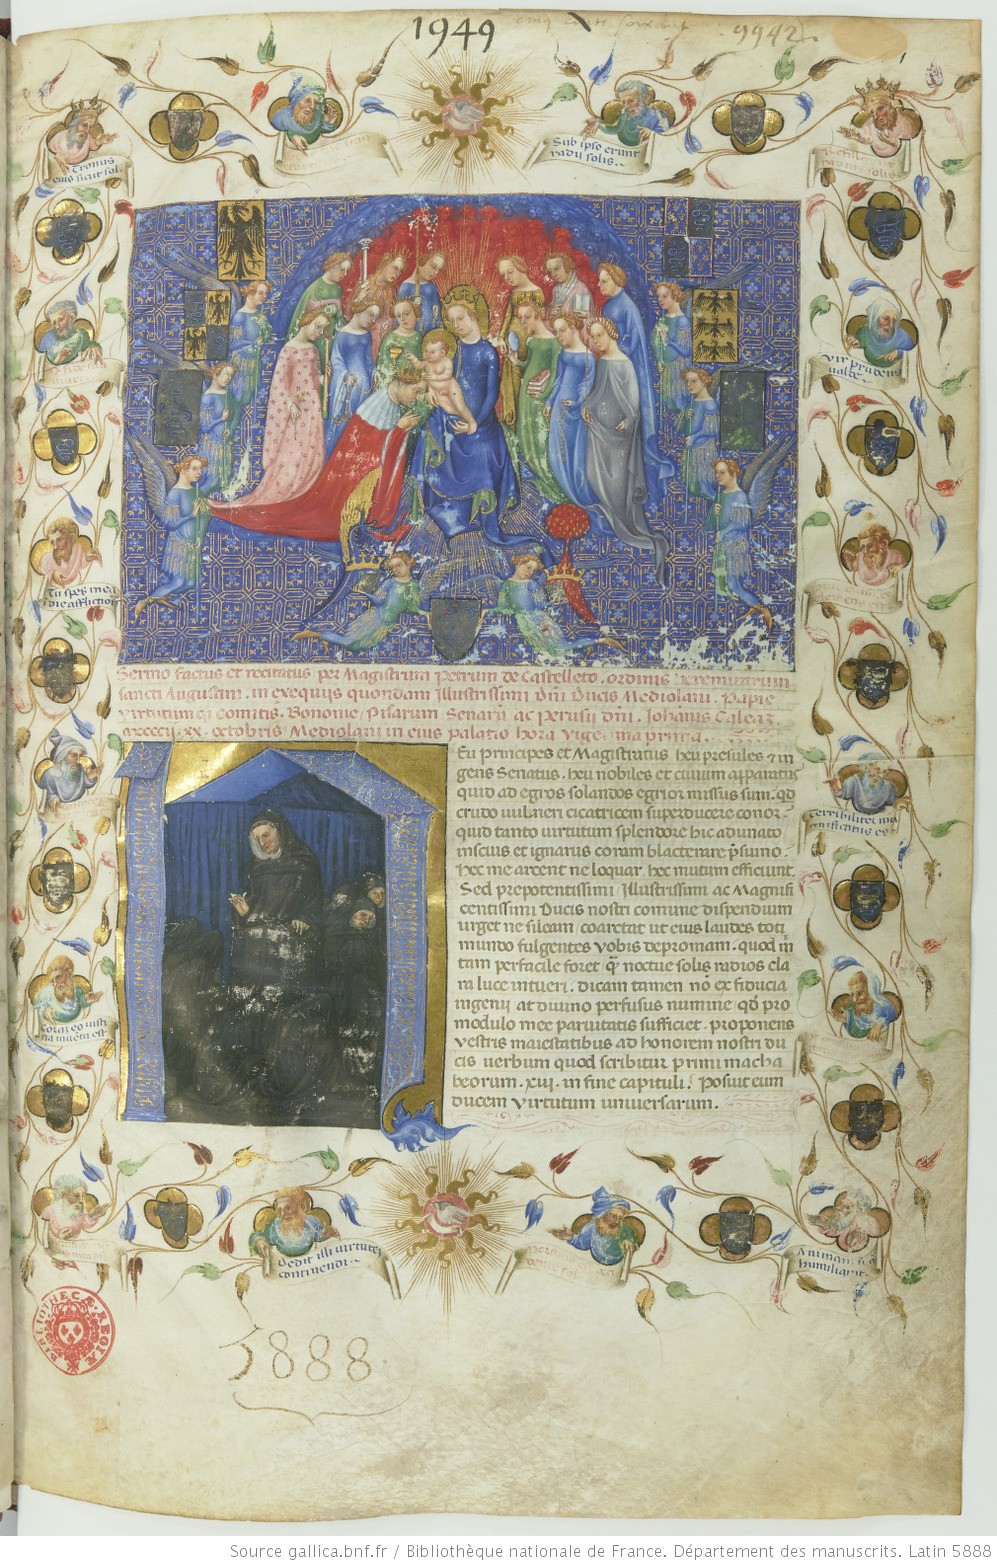 1949
9942
Tronus
eius sicut sol.
Sub ipso erunt
radii solis.
Vir prudens
valde.
Tu spes mea
i die afflictiōis
Terribilite ma
gnificatus es
Sermo factus et recitatus per Magistrum Petrum de Castelleto. ordinis heremitarum
sancti Augustini. in exequiis quondam Illustrissimi Dñi Ducis Mediolani. Papie
virtutumq; Comitis. Bononie, Pisarum Senarū ac perusii dñi. Iohānis Galeaz
mccccij. xx. octobris Mediolani in eius palatio hora vigesima prima.
Eu principes et Magistratus heu presules z in
gens Senatus. heu nobiles et ciuium apparatus
quid ad egros solandos egrior missus sum. qd
crudo vulneri cicatricem superducere conor.
quid tanto virtutum splendore hic adunato
inscius et ignarus coram blacterare p̄sumo.
hec me arcent ne loquar. hec mutum efficiunt.
Sed prepotentissimi Illustrissimi ac Magnifi
centissimi Ducis nostri comune dispendium
urget ne sileam, coaretat ut eius laudes toti
mundo fulgentes vobis depromam. quod m̄
tam perfacile foret q̄ noctue solis radios cla
ra luce intueri. dicam tamen nō ex fiducia
ingenii at diuino perfusus numine qd̄ pro
modulo mee paruitatis sufficiet. proponens
vestris maiestatibus ad honorem nostri du
cis verbum quod scribitur primi macha
beorum. xvi. in fine capituli. Posuit eum
ducem virtutum uniuersarum.
Dedit illi virtutez
continendi.
humiliauit.
BIBLIOTHECÆ REGIÆ
5888
Source gallica.bnf.fr / Bibliothèque nationale de France. Département des manuscrits. Latin 5888